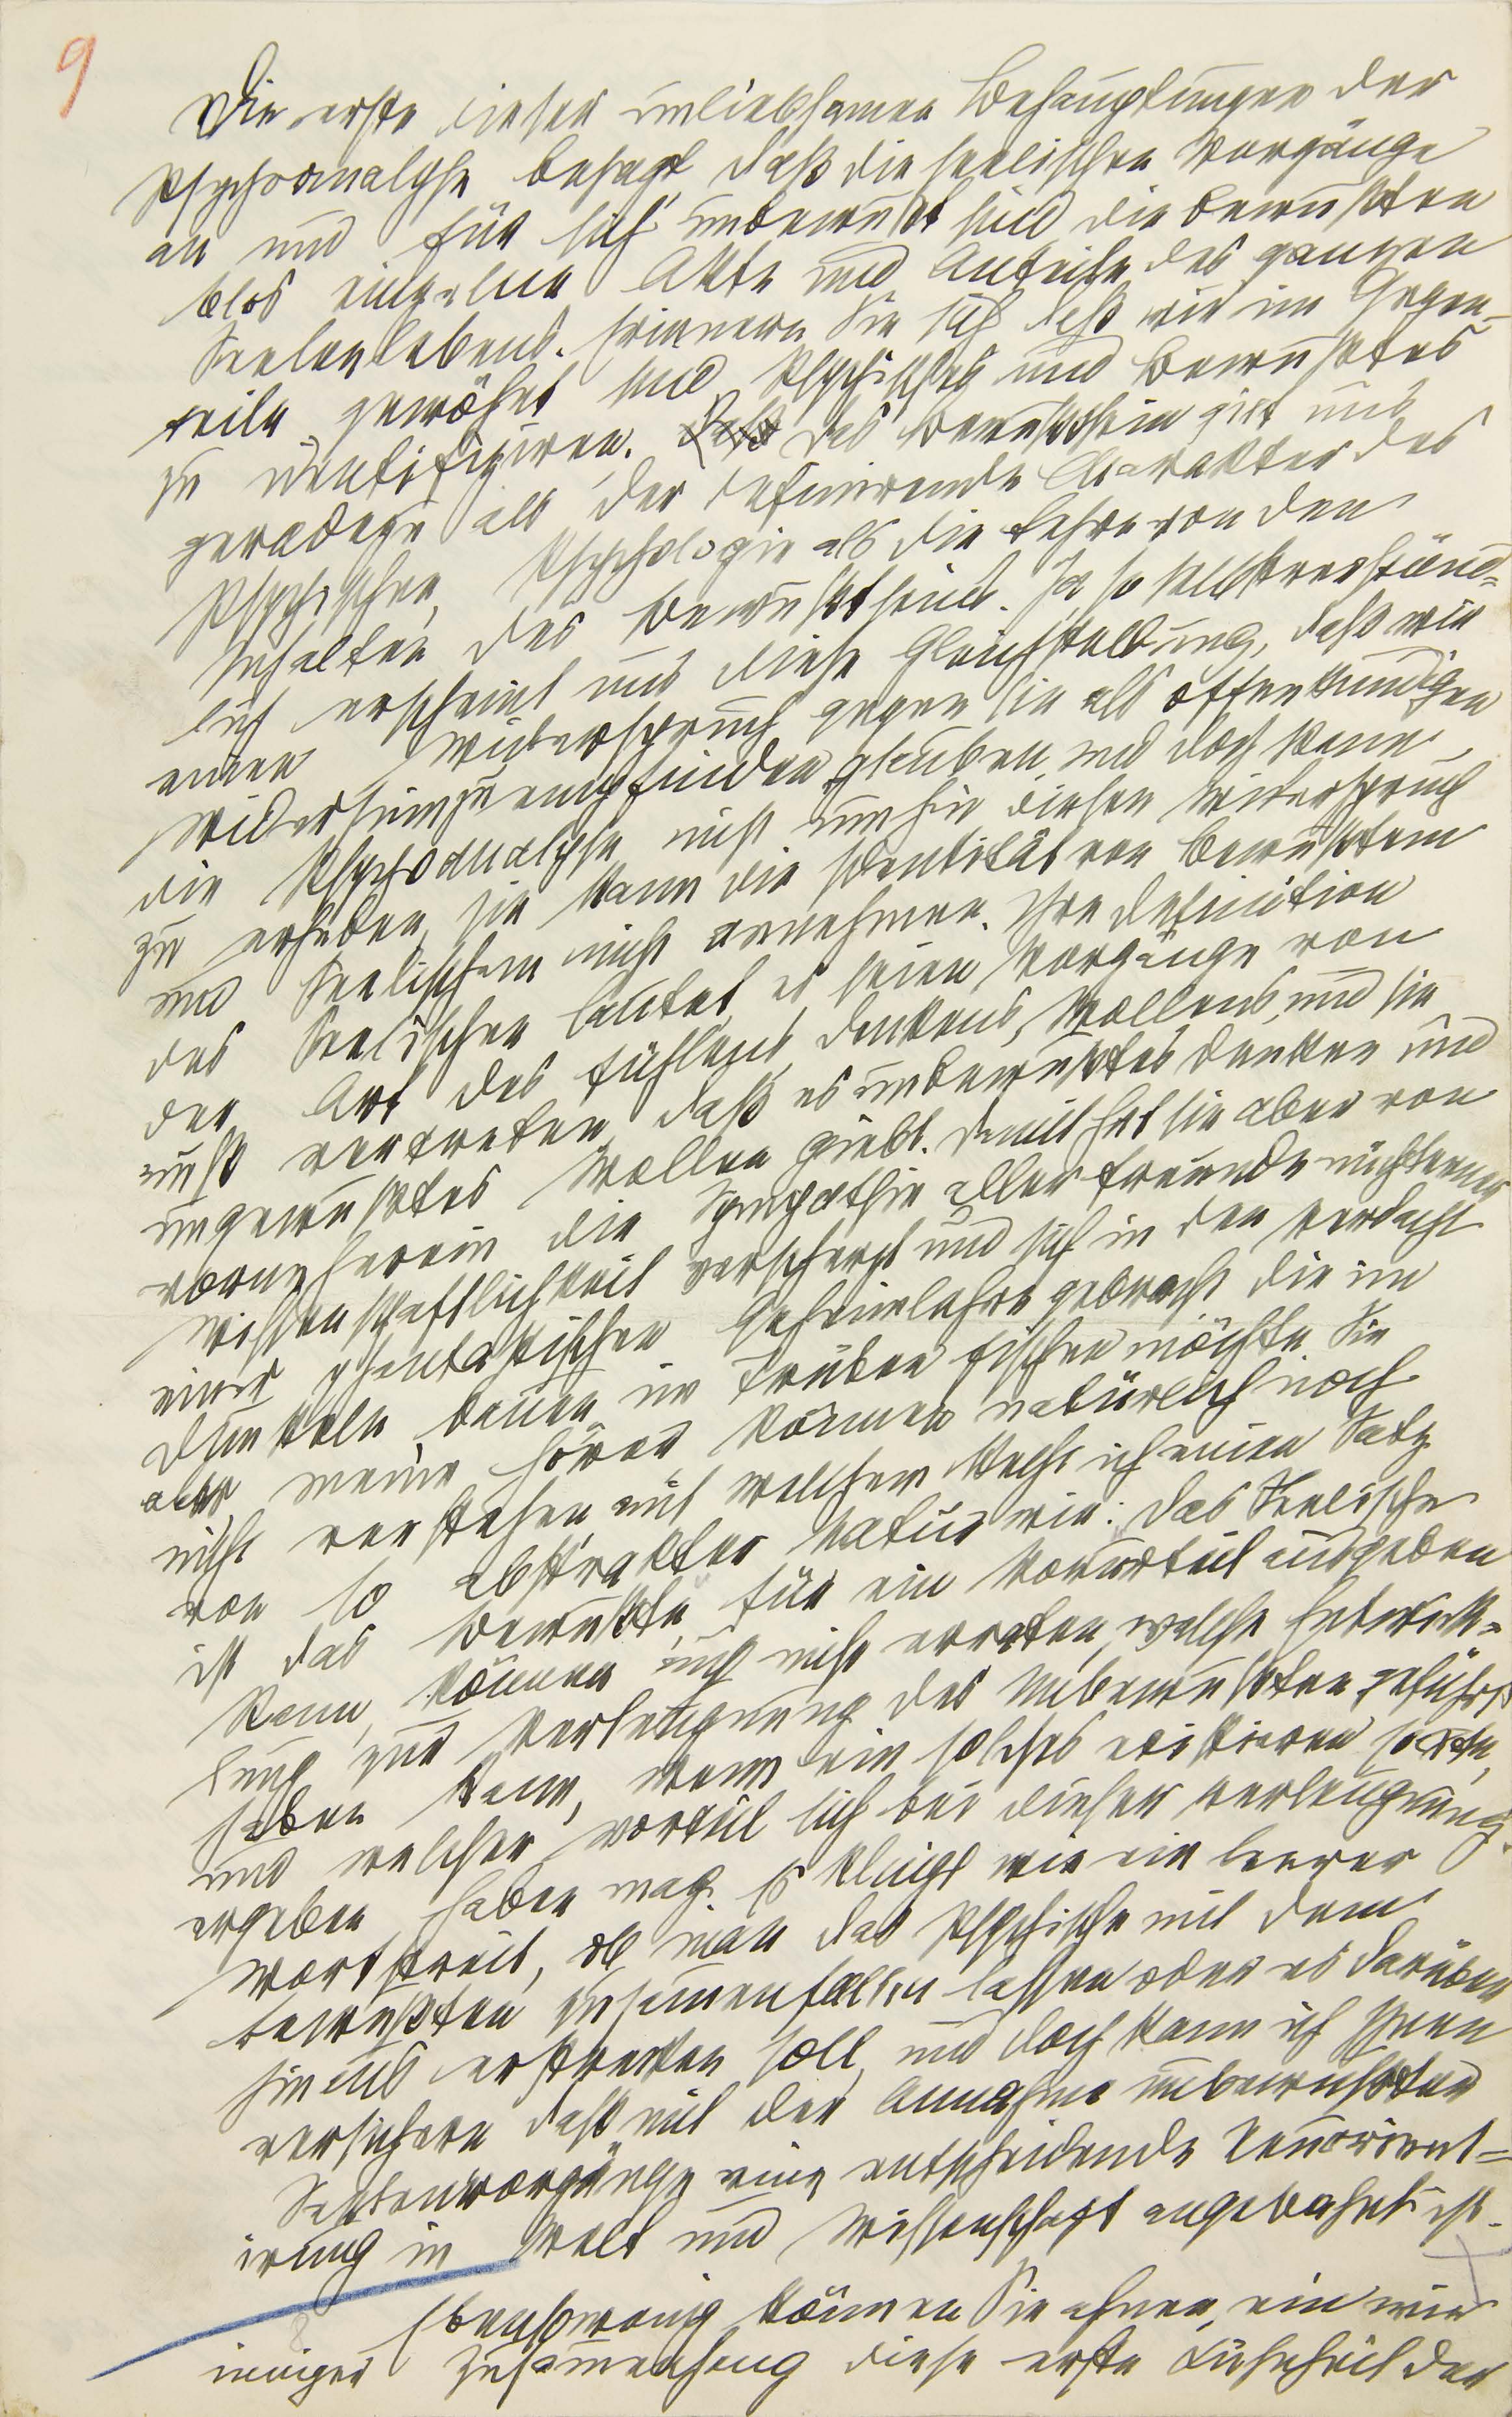 9
Die erste dieser unliebsamen Behauptungen der
Psychoanalyse besagt, daß die seelischen Vorgänge
an und für sich unbewußt sind die bewußten
blos einzelne Akte und Anteile des ganzen
Seelenlebens. Erinnern Sie sich daß wir im Gegen-
teile gewöhnt sind Psychisches und Bewußtes
zu identifiziren. Das Bewußtsein gilt uns
geradezu als der definirende Charakter des
Psychischen, Psychologie als die Lehre von den
Inhalten des Bewußtseins. Ja so selbstverständ-
lich erscheint uns diese Gleichstellung, daß wir
einen Widerspruch gegen sie als offenkundigen
Widersinn zu empfinden glauben, und doch kann
die Psychoanalyse nicht umhin diesen Widerspruch
zu erheben, sie kann die Identität von Bewußtem
und Seelischem nicht annehmen. Ihre Definition
des Seelischen lautet, es seien Vorgänge von
der Art des Fühlens, Denkens, Wollens, und sie
muß vertreten, daß es unbewußtes Denken und
ungewußtes Wollen giebt. Damit hat sie aber von
vorneherein die Sympathie aller Freunde nüchterner
Wissenschaftlichkeit verscherzt und sich in den Verdacht
einer phantastischen Geheimlehre gebracht die im
Dunkeln bauen, im Trüben fischen möchte. Sie
aber, meine Hörer, können natürlich noch
nicht verstehen, mit welchem Recht ich einen Satz
von so abstrakter Natur wie: Das Seelische
ist das Bewußte, für ein Vorurteil ausgeben
kann, können auch nicht erraten, welche Entwick-
lung zur Verleugnung des Unbewußten geführt
haben kann, wenn ein solches existieren sollte,
und welcher Vorteil sich bei dieser Verleugnung
ergeben haben mag. Es klingt wie ein leerer
Wortstreit, ob man das Psychische mit dem
Bewußten zusammenfallen lassen oder es darüber
hinaus erstrecken soll, und doch kann ich Ihnen
versichern daß mit der Annahme unbewußter
Seelenvorgänge eine entscheidende Neuorient-
irung in Welt und Wissenschaft angebahnt ist.
Ebensowenig können Sie ahnen, ein wie
inniger Zusammenhang diese erste Kühnheit der